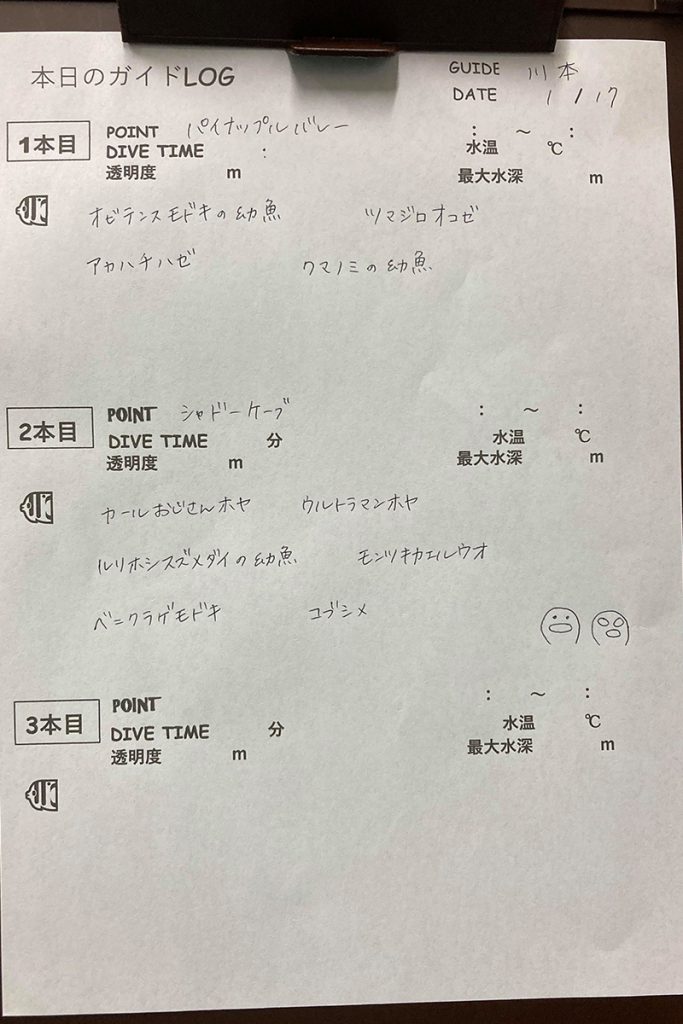 本日のガイドLOG
GUIDE 川本
DATE 1/17
1本目 POINT パイナップルバレー : ～ :
DIVE TIME : 水温 ℃
透明度 m 最大水深 m
オビテンスモドキの幼魚 ツマジロオコゼ
アカハチハゼ クマノミの幼魚
2本目 POINT シャドーケーブ : ～ :
DIVE TIME 分 水温 ℃
透明度 m 最大水深 m
カールおじさんホヤ ウルトラマンホヤ
ルリホシスズメダイの幼魚 モンツキカエルウオ
ベニクラゲモドキ コブシメ
3本目 POINT : ～ :
DIVE TIME 分 水温 ℃
透明度 m 最大水深 m